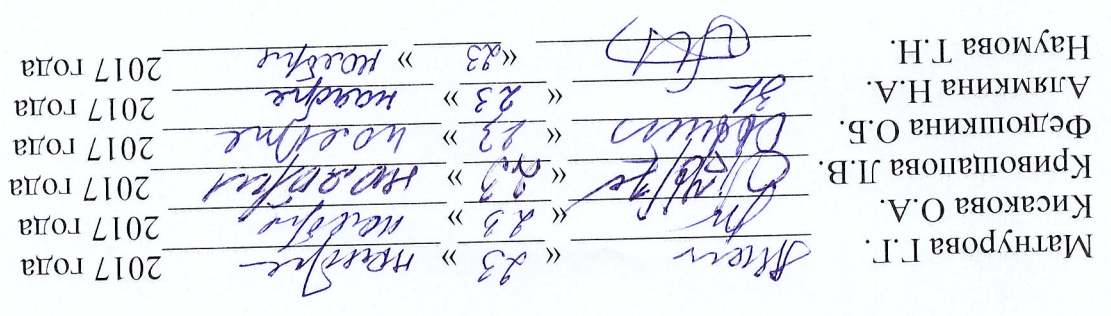 Матнурова Г.Г. « 23 » ноября 2017 года
Кисакова О.А. « 23 » ноября 2017 года
Кривощапова Л.В. « 23 » ноября 2017 года
Федюшкина О.Б. « 23 » ноября 2017 года
Алямкина Н.А. « 23 » ноября 2017 года
Наумова Т.Н. « 23 » ноября 2017 года